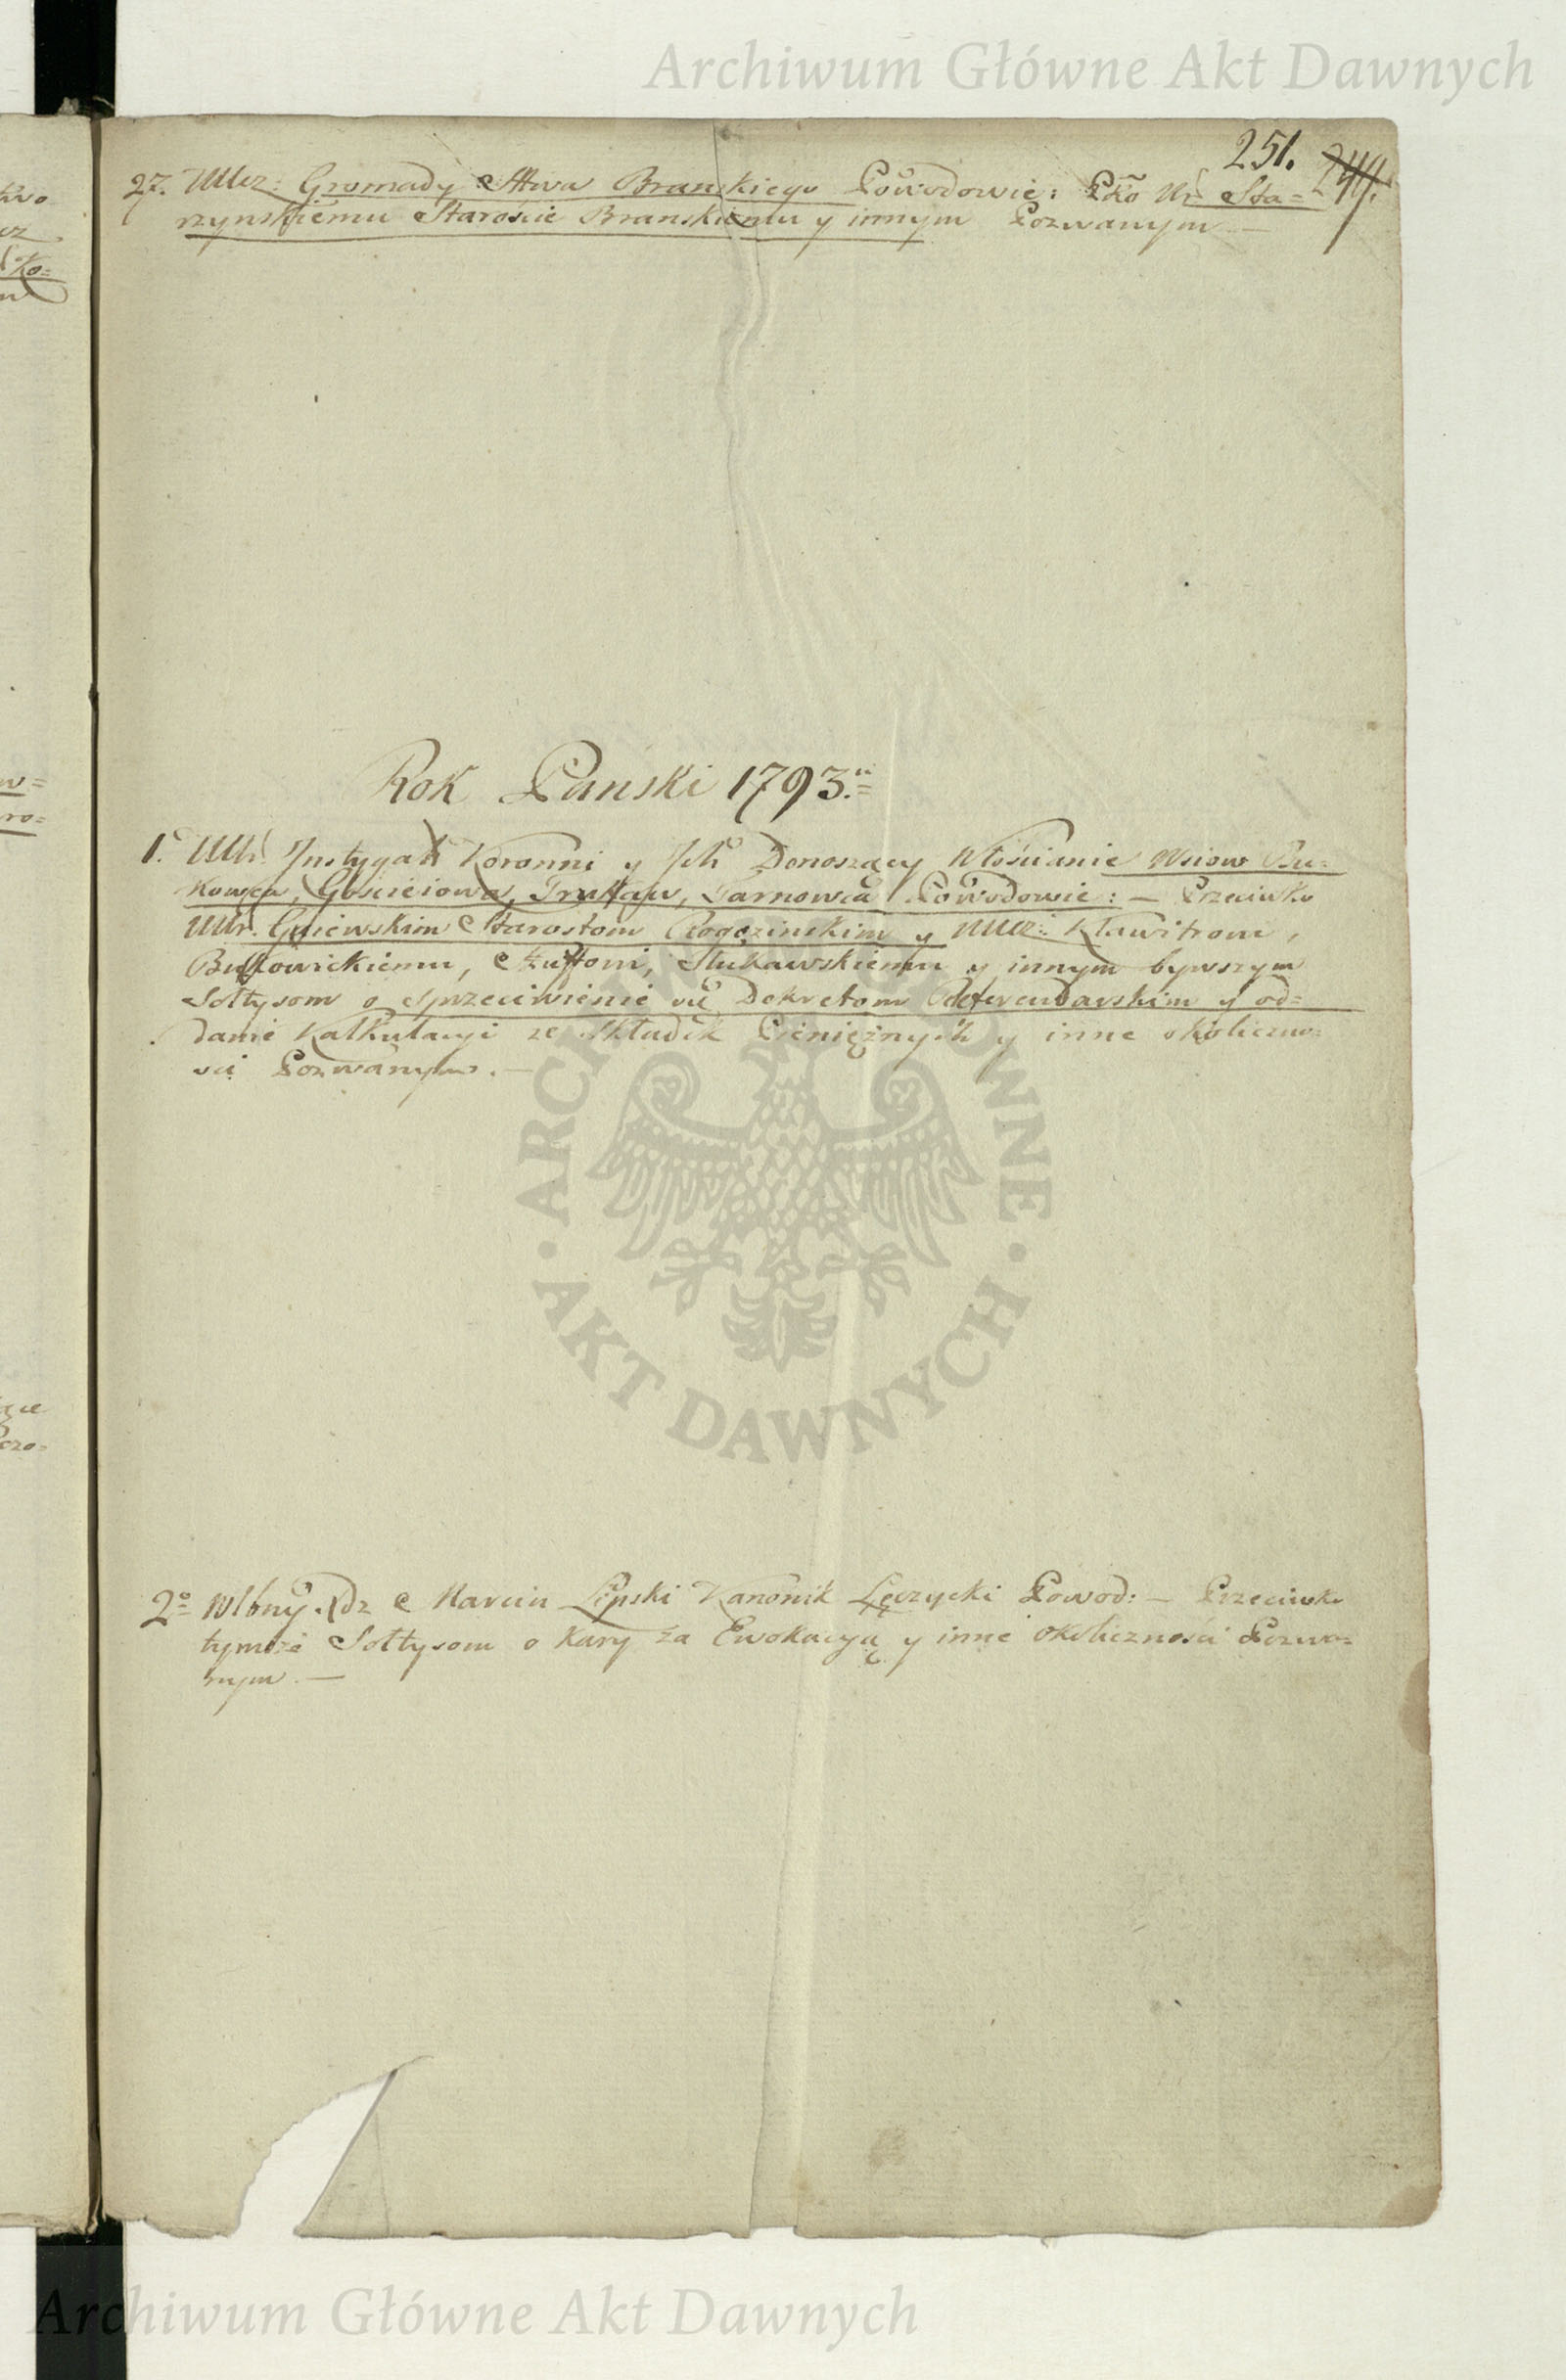 Archiwum Główne Akt Dawnych
251. 244.
27. UUcz: Gromady Sttwa Branskiego Powodowie: Pko Ur Sta=
rzynskiemu Staroście Branskiemu y innym Pozwanym —
Rok Panski 1793.
1. UUr. Instygat: Koronni y Ich Donoszący Włościanie Wsiow Bu=
kowca, Gościeiowa, Tarnowca Powodowie: — Przeciwko
UUr. Gniewskim Starostom Rogozinskim y UUcz: Klawitrowi,
Bukowickiemu, Sżuftowi, Slukawskiemu y innym bywszym
Sołtysom o sprzeciwienie się Dekretom Referendarskim y od=
danie Kalkulacyi ze składek Pieniężnych y inne okoliczno=
sci Pozwanym. —
2o Wlbny. Xdz Marcin Lipski Kanonik Łęczycki Powod: — Przeciwko
tymże Sołtysom o kary za Ewokacyą y inne okoliczności Pozwa=
nym. —
ARCHIWUM GŁÓWNE · AKT DAWNYCH ·
Archiwum Główne Akt Dawnych